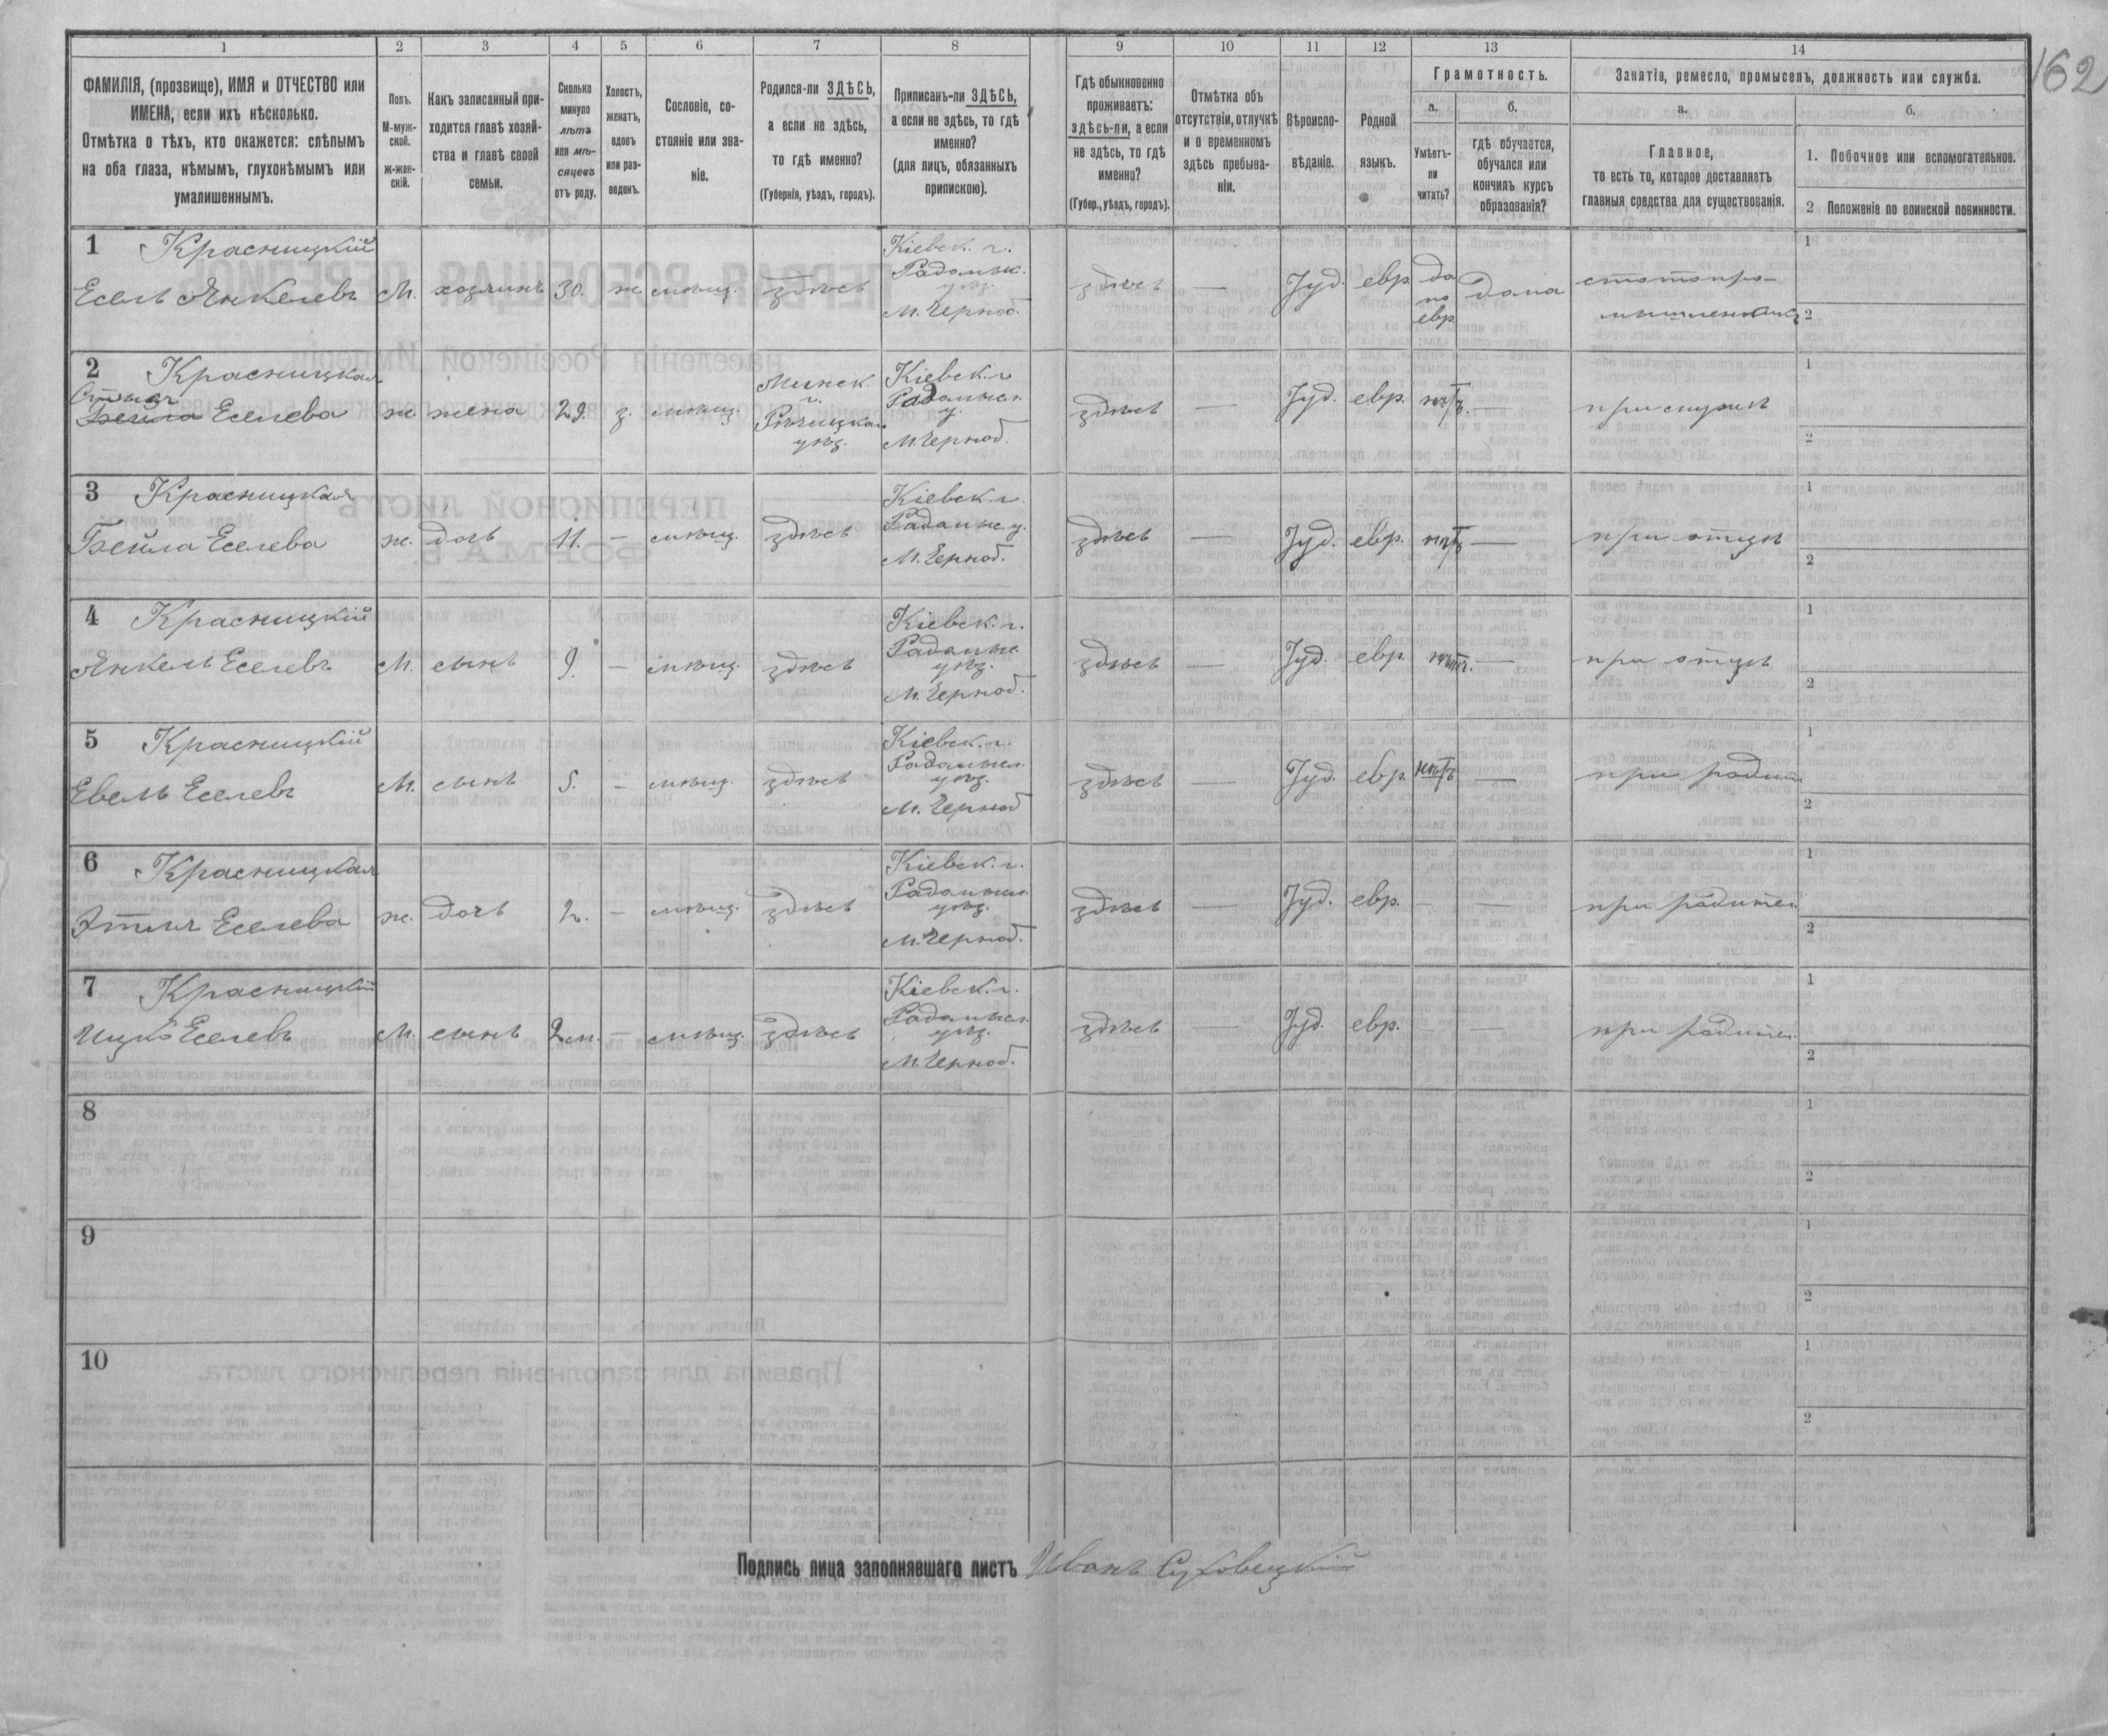 162
1 2 3 4 5 6 7 8 9 10 11 12 13 14
ФАМИЛІЯ, (прозвище), ИМЯ и ОТЧЕСТВО или
ИМЕНА, если ихъ нѣсколько.
Отмѣтка о тѣхъ, кто окажется: слѣпымъ
на оба глаза, нѣмымъ, глухонѣмымъ или
умалишеннымъ.
Полъ.
М-муж-
ской.
ж-жен-
скій.
Какъ записанный при-
ходится главѣ хозяй-
ства и главѣ своей
семьи.
Сколько
минуло
лѣтъ
или мѣ-
сяцевъ
отъ роду.
Холостъ,
женатъ,
вдовъ
или раз-
веденъ.
Сословіе, со-
стояніе или зва-
ніе.
Родился-ли ЗДѢСЬ,
а если не здѣсь,
то гдѣ именно?
(Губернія, уѣздъ, городъ).
Приписанъ-ли ЗДѢСЬ,
а если не здѣсь, то гдѣ
именно?
(для лицъ, обязанныхъ
припискою).
Гдѣ обыкновенно
проживаетъ:
здѣсь-ли, а если
не здѣсь, то гдѣ
именно?
(Губер., уѣздъ, городъ).
Отмѣтка объ
отсутствіи, отлучкѣ
и о временномъ
здѣсь пребыва-
ніи.
Вѣроиспо-
вѣданіе.
Родной
языкъ.
Грамотность.
а.
Умѣетъ-
ли
читать?
б.
гдѣ обучается,
обучался или
кончилъ курсъ
образованія?
Занятіе, ремесло, промыселъ, должность или служба.
а.
Главное,
то есть то, которое доставляетъ
главныя средства для существованія.
б.
1. Побочное или вспомогательное.
2 Положеніе по воинской повинности.
1 Красницкій
Есель Янкелевъ
М.
хозяинъ
30.
ж
мѣщ.
здѣсь
Кіевск. г.
Радомыс.
уѣз.
М. Черноб.
здѣсь
—
Іуд.
евр.
да
по
евр.
дома
1
2
2 Красницкая
Бейла Еселева
ж
жена
29.
з.
мѣщ.
Минск.
г.
Рѣчицкаго
уѣз.
Кіевск. г
Радомысл.
у.
М. Черноб.
здѣсь
—
Іуд.
евр.
нѣтъ.
—
при мужѣ
1
2
3 Красницкая
Бейла Еселева
ж.
дочь
11.
—
мѣщ.
здѣсь
Кіевск. г.
Радомыс. у.
М. Черноб.
здѣсь
—
Іуд.
евр.
нѣтъ
—
при отцѣ
1
2
4 Красницкій
Янкель Еселевъ
М.
сынъ
9.
—
мѣщ.
здѣсь
Кіевск. г.
Радомыс.
уѣз.
М. Черноб.
здѣсь
—
Іуд.
евр
нѣтъ.
—
при отцѣ
1
2
5 Красницкій
Евель Еселевъ
М.
сынъ
5.
—
мѣщ.
здѣсь
Кіевск. г.
Радомысл.
уѣз.
М. Черноб
здѣсь
—
Іуд.
евр.
нѣтъ
—
при родит
1
2
6 Красницкая
Этля Еселева
ж.
дочь
2.
—
мѣщ.
здѣсь
Кіевск. г.
Радомысл.
уѣз.
М. Черноб.
здѣсь
—
Іуд.
евр.
—
—
при родител.
1
2
7 Красницкій
Ицко Еселевъ
М.
сынъ
2 м.
—
мѣщ.
здѣсь
Кіевск. г.
Радомысл.
уѣз.
М. Черноб.
здѣсь
—
Іуд.
евр.
—
—
при родител.
1
2
8
1
2
9
1
2
10
1
2
Подпись лица заполнявшаго листъ Иванъ Суховецкій